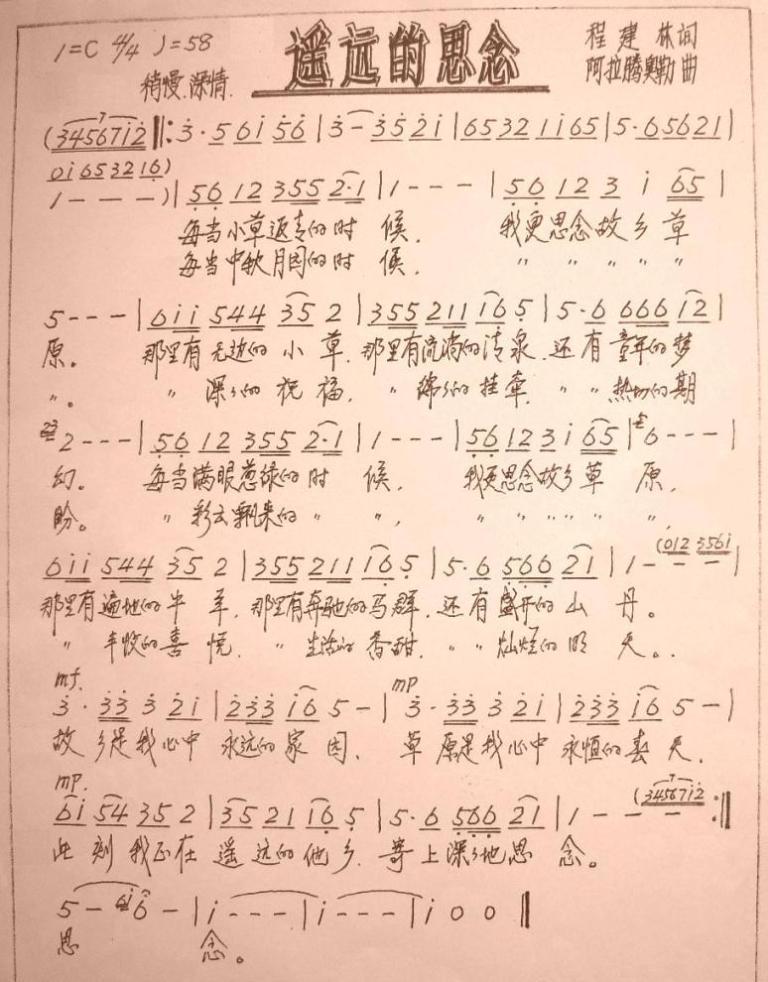 遥远的思念
1=C 4/4 ♩=58
稍慢.深情.
程建林词
阿拉腾奥勒曲
(3456712‖: 3·56i 56 | 3- 3521 | 6532 1165 | 5·65621 |
0i653216)
1---)| 56 12 355 2·1 | 1--- | 56 12 3 i 65 |
每当小草返青的时候. 我更思念故乡草
每当中秋月圆的时候. 〃 〃 〃 〃 〃
5---| 6ii 544 35 2 | 355 211 i6 5 | 5·6 666 i2 |
原。 那里有无边的小草. 那里有流淌的清泉. 还有童年的梦
〃。 〃 深々的祝福. 〃 绵々的挂牵. 〃 〃 热切的期
2---| 56 12 355 2·1 | 1--- | 56 12 3 i 65 | 6---|
幻. 每当满眼葱绿的时候. 我更思念故乡草原.
盼。 〃 彩云飘来的 〃 〃, 〃 〃 〃 〃 〃 〃,
6ii 544 35 2 | 355 211 i6 5 | 5·6 566 21 | 1--- (012 3561 |
那里有遍地的牛羊. 那里有奔驰的马群. 还有盛开的山丹。
〃 丰收的喜悦. 〃 生活的香甜. 〃 〃 灿烂的明天。.
mf. mp
3·33 3 2i | 233 i6 5- | 3·33 3 2i | 233 i6 5- |
故乡是我心中永远的家园. 草原是我心中永恒的春天.
mp.
6i 54 35 2 | 35 21 i6 5 | 5·6 566 21 | 1--- (3456712 :‖
此刻我正在遥远的他乡. 寄上深々地思念。
5- 6- | i--- | i--- | i 0 0 ‖
思 念。